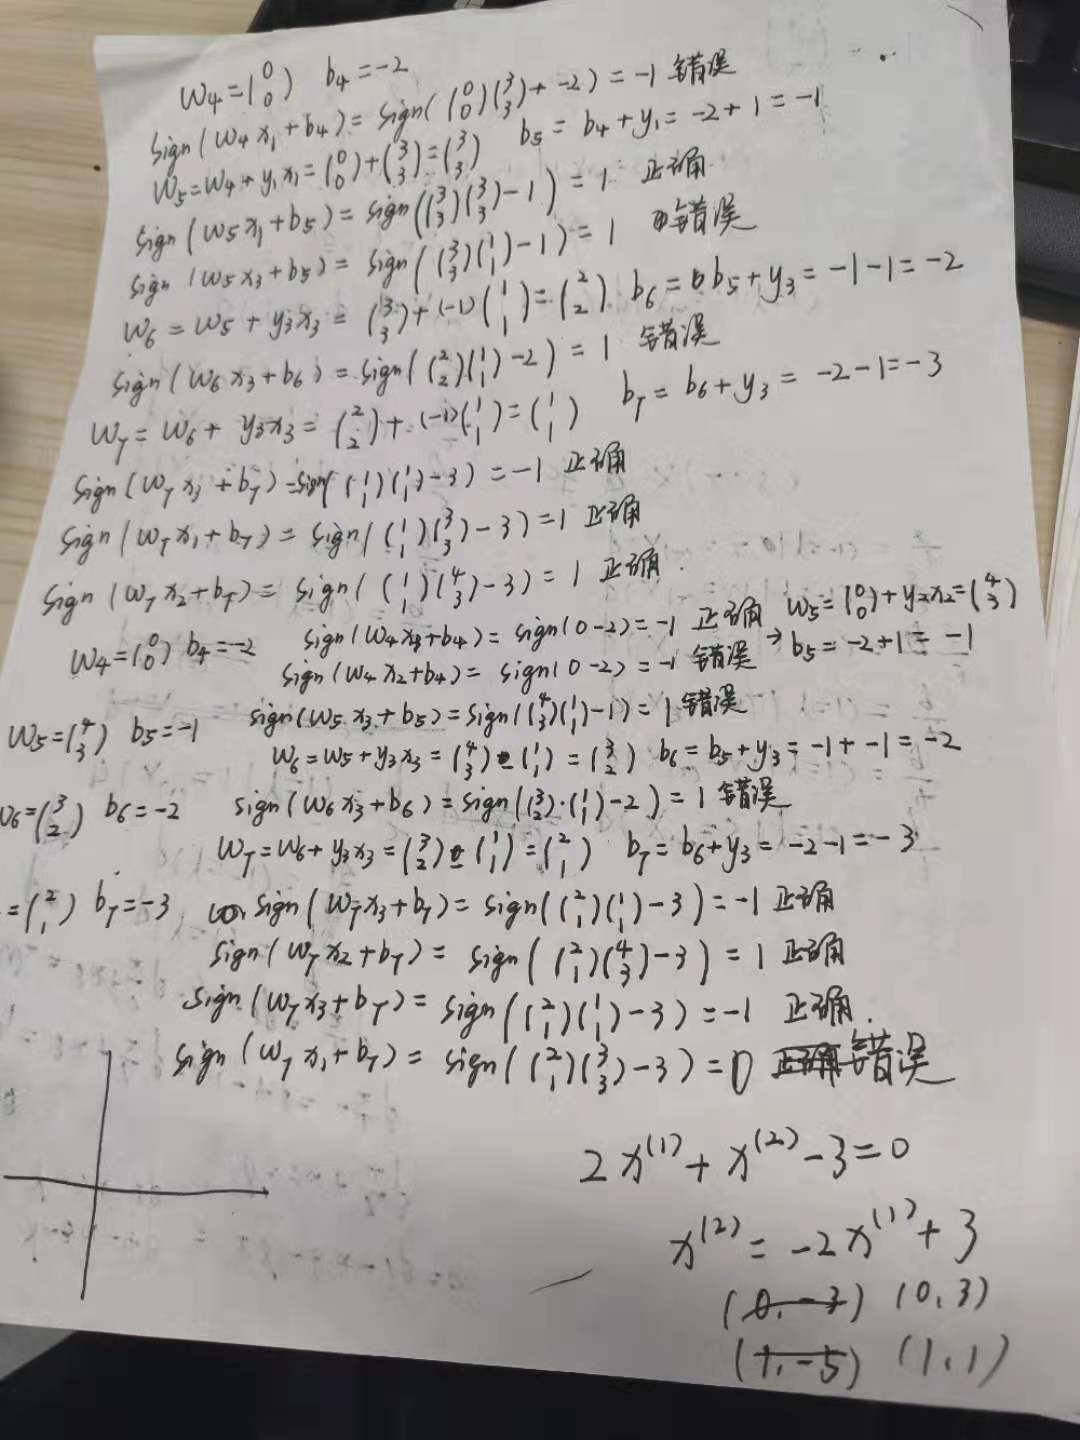 w₄=(0 0) b₄=-2
sign(w₄x₁+b₄)=sign((0 0)(3 3)+-2)=-1 错误
w₅=w₄+y₁x₁=(0 0)+(3 3)=(3 3) b₅=b₄+y₁=-2+1=-1
sign(w₅x₁+b₅)=sign((3 3)(3 3)-1)=1 正确
sign(w₅x₃+b₅)=sign((3 3)(1 1)-1)=1 错误
w₆=w₅+y₃x₃=(3 3)+(-1)(1 1)=(2 2) b₆=b₅+y₃=-1-1=-2
sign(w₆x₃+b₆)=sign((2 2)(1 1)-2)=1 错误
w₇=w₆+y₃x₃=(2 2)+(-1)(1 1)=(1 1) b₇=b₆+y₃=-2-1=-3
sign(w₇x₃+b₇)=sign((1 1)(1 1)-3)=-1 正确
sign(w₇x₁+b₇)=sign((1 1)(3 3)-3)=1 正确
sign(w₇x₂+b₇)=sign((1 1)(4 3)-3)=1 正确.
w₄=(0 0) b₄=-2 sign(w₄x₃+b₄)=sign(0-2)=-1 正确 w₅=(0 0)+y₂x₂=(4 3)
sign(w₄x₂+b₄)=sign(0-2)=-1 错误 → b₅=-2+1=-1
w₅=(4 3) b₅=-1 sign(w₅x₃+b₅)=sign((4 3)(1 1)-1)=1 错误
w₆=w₅+y₃x₃=(4 3)-(1 1)=(3 2) b₆=b₅+y₃=-1+-1=-2
w₆=(3 2) b₆=-2 sign(w₆x₃+b₆)=sign((3 2)·(1 1)-2)=1 错误
w₇=w₆+y₃x₃=(3 2)-(1 1)=(2 1) b₇=b₆+y₃=-2-1=-3
=(2 1) b₇=-3 sign(w₇x₃+b₇)=sign((2 1)(1 1)-3)=-1 正确
sign(w₇x₂+b₇)=sign((2 1)(4 3)-3)=1 正确
sign(w₇x₃+b₇)=sign((2 1)(1 1)-3)=-1 正确.
sign(w₇x₁+b₇)=sign((2 1)(3 3)-3)=0 正确错误
2x⁽¹⁾+x⁽²⁾-3=0
x⁽²⁾=-2x⁽¹⁾+3
(0,-3) (0,3)
(1,-5) (1,1)